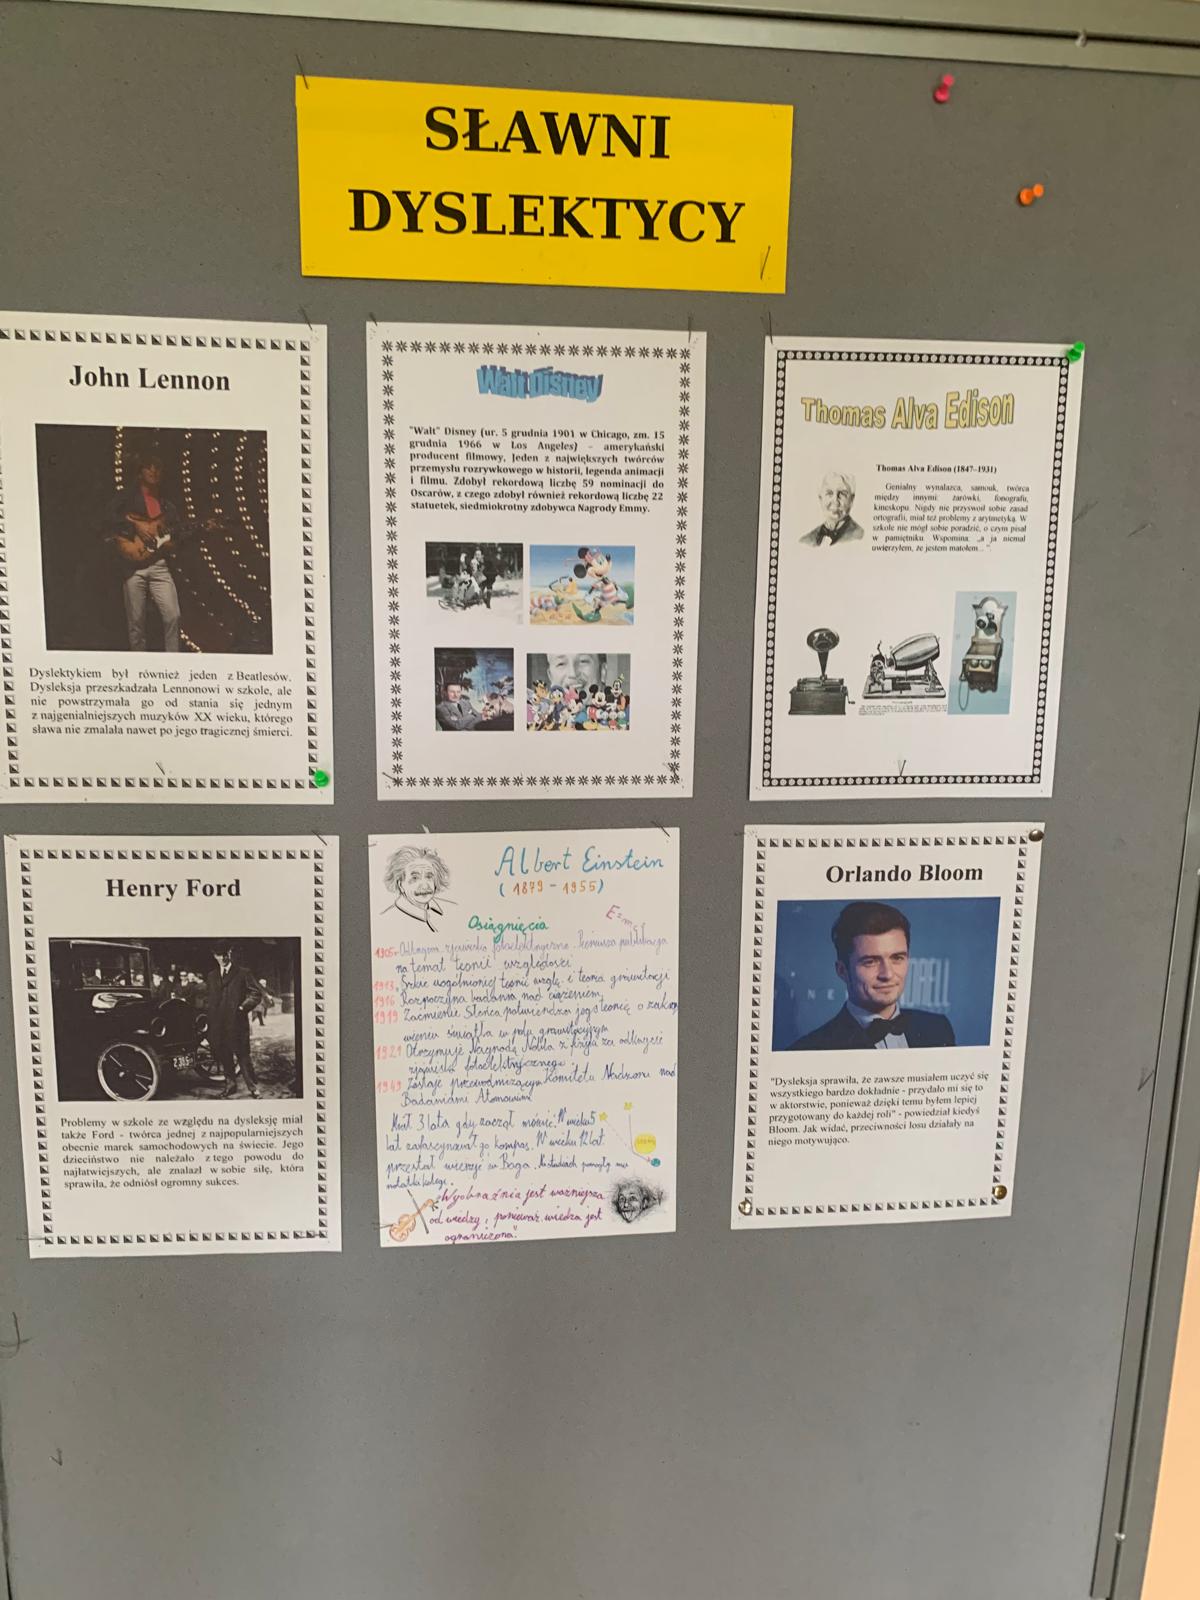 SŁAWNI
DYSLEKTYCY
John Lennon
Dyslektykiem był również jeden z Beatlesów.
Dysleksja przeszkadzała Lennonowi w szkole, ale
nie powstrzymała go od stania się jednym
z najgenialniejszych muzyków XX wieku, którego
sława nie zmalała nawet po jego tragicznej śmierci.
Walt Disney
"Walt" Disney (ur. 5 grudnia 1901 w Chicago, zm. 15
grudnia 1966 w Los Angeles) – amerykański
producent filmowy, jeden z największych twórców
przemysłu rozrywkowego w historii, legenda animacji
i filmu. Zdobył rekordową liczbę 59 nominacji do
Oscarów, z czego zdobył również rekordową liczbę 22
statuetek, siedmiokrotny zdobywca Nagrody Emmy.
Thomas Alva Edison
Thomas Alva Edison (1847–1931)
Genialny wynalazca, samouk, twórca
między innymi: żarówki, fonografu,
kineskopu. Nigdy nie przyswoił sobie zasad
ortografii, miał też problemy z arytmetyką. W
szkole nie mógł sobie poradzić, o czym pisał
w pamiętniku. Wspomina: „a ja niemal
uwierzyłem, że jestem matołem...”.
Henry Ford
Problemy w szkole ze względu na dysleksję miał
także Ford - twórca jednej z najpopularniejszych
obecnie marek samochodowych na świecie. Jego
dzieciństwo nie należało z tego powodu do
najłatwiejszych, ale znalazł w sobie siłę, która
sprawiła, że odniósł ogromny sukces.
Albert Einstein
(1879 - 1955)
Osiągnięcia
1905r. zjawiska fotoelektryczne. Pierwsza publikacja
na temat teorii względości.
1913, Szkic uogólnionej teorii wzglę. i teoria grawitacji
1916 Rozpoczyna badania nad ciążeniem,
1919 Zaćmienie Słońca potwierdza jego teorię o zakrzy
wieniu światła w polu grawitacyjnym
1921 Otrzymuje Nagrodę Nobla z fizyki za odkrycie
zjawiska fotoelektrycznego.
1949 Zostaje przewodniczącym Komitetu Nadzoru nad
Badaniami Atomowymi
Miał 3 lata gdy zaczął mówić. W wieku 5
lat zafascynował go kompas. W wieku 12 lat
przestał wierzyć w Boga. Na studiach pomogły mu
notatki kolegi.
"Wyobraźnia jest ważniejsza
od wiedzy, ponieważ wiedza jest
ograniczona."
Orlando Bloom
"Dysleksja sprawiła, że zawsze musiałem uczyć się
wszystkiego bardzo dokładnie - przydało mi się to
w aktorstwie, ponieważ dzięki temu byłem lepiej
przygotowany do każdej roli" - powiedział kiedyś
Bloom. Jak widać, przeciwności losu działały na
niego motywująco.